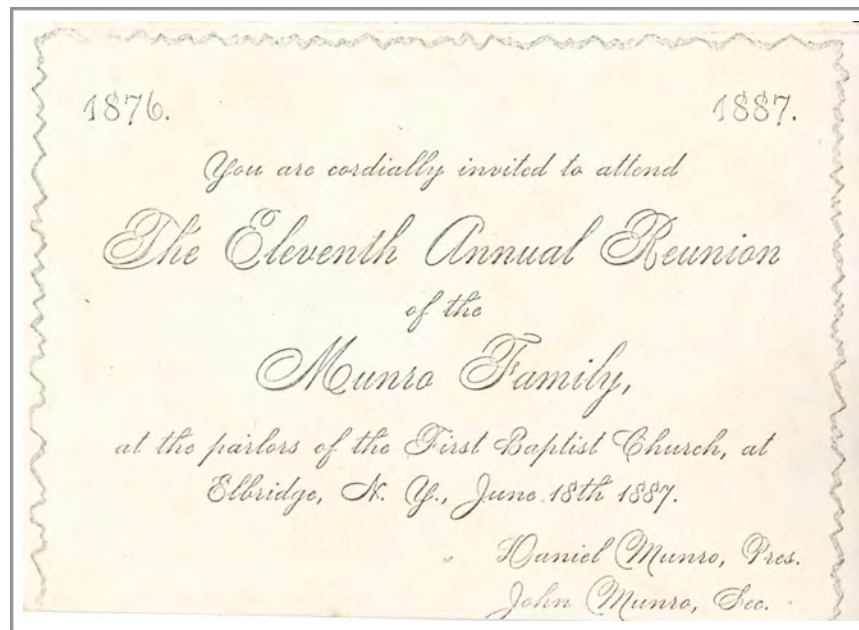 1876. 1887.
You are cordially invited to attend
The Eleventh Annual Reunion
of the
Munro Family,
at the parlors of the First Baptist Church, at
Elbridge, N. Y., June 18th 1887.
Daniel Munro, Pres.
John Munro, Sec.